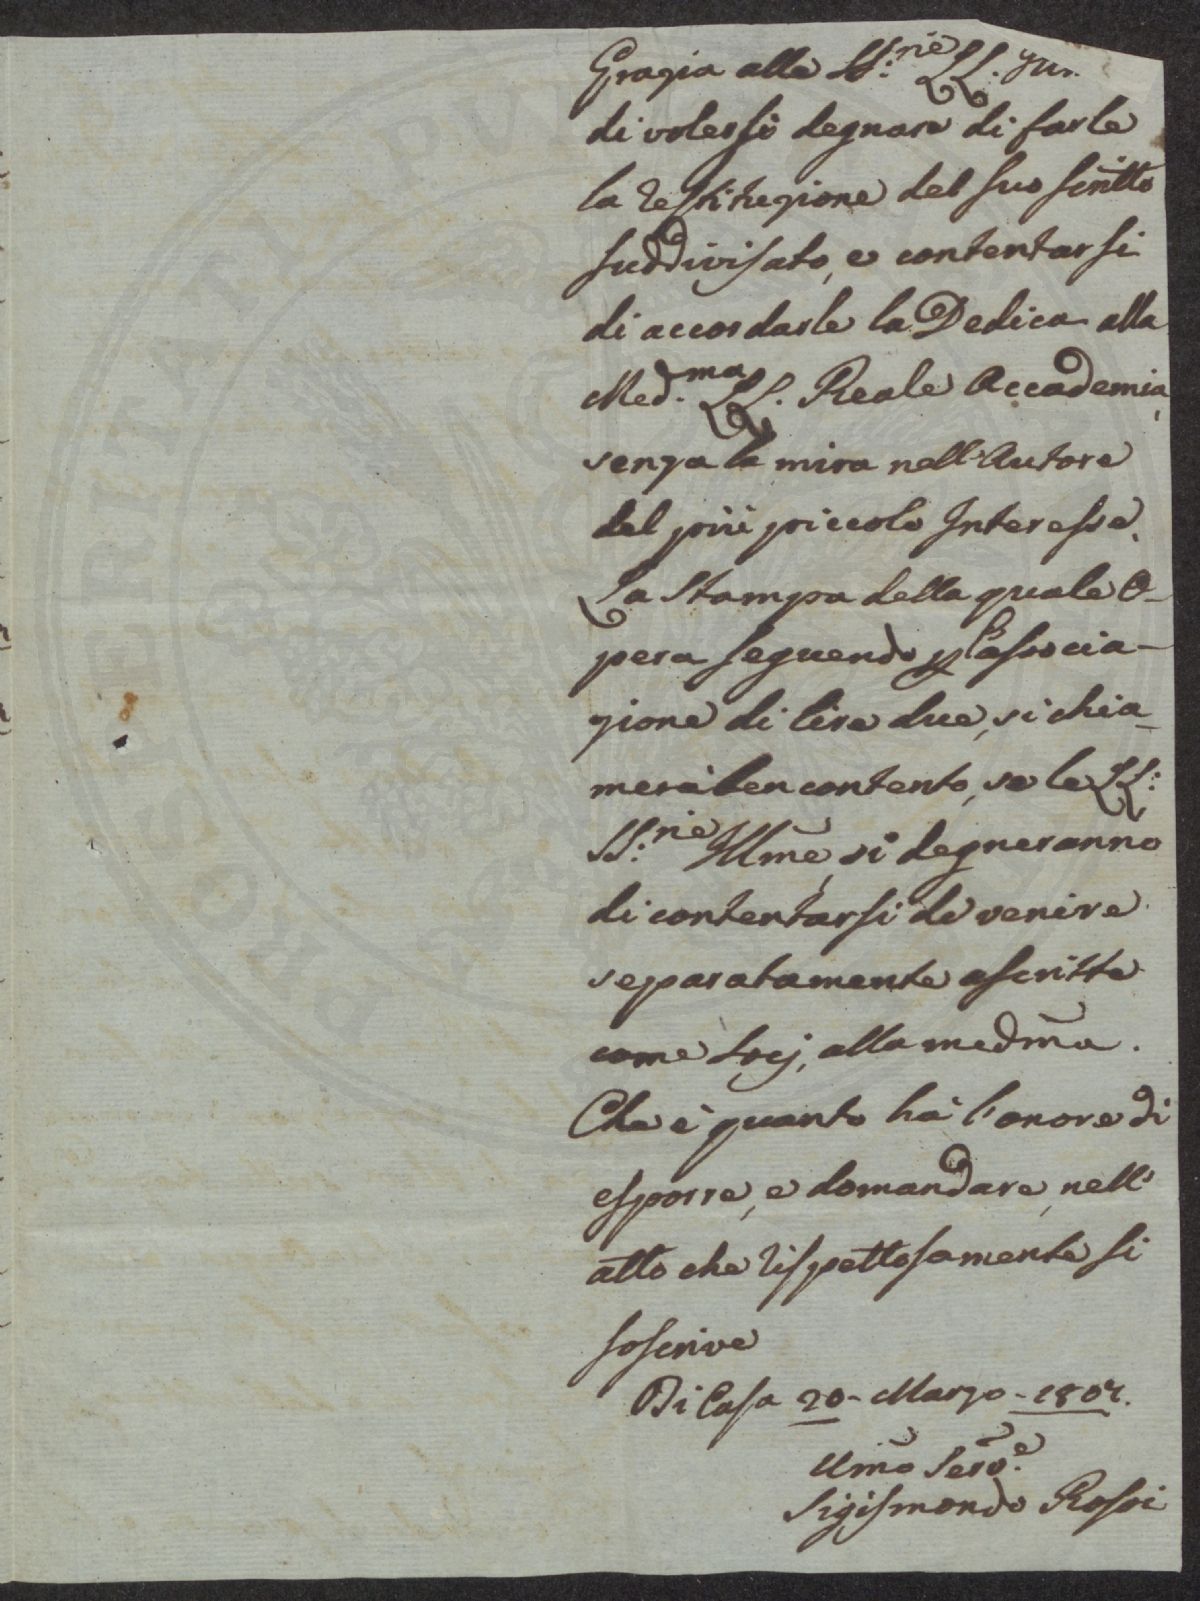 Grazia alle SS.rie LL.
di volersi degnare di farle
la restituzione del suo scritto
suddivisato, e contentarsi
di accordarle la Dedica alla
Med.ma LL. Reale Accademia,
senza la mira nell'Autore
del più piccolo Interesse.
La Stampa della quale O-
pera seguendo p l'associa-
zione di lire due, si chia-
merà ben contento, se le LL:
SS.rie Illme, si degneranno
di contentarsi de venire
separatamente ascritte
come Socj, alla medma.
Che è quanto hà l'onore di
esporre, e domandare, nell'
atto che rispettosamente si
soscrive
Di Casa 20 - Marzo - 1807.
Umo Servo.e
Sigismondo Rossi
PROSPERITATI PVBLICAE